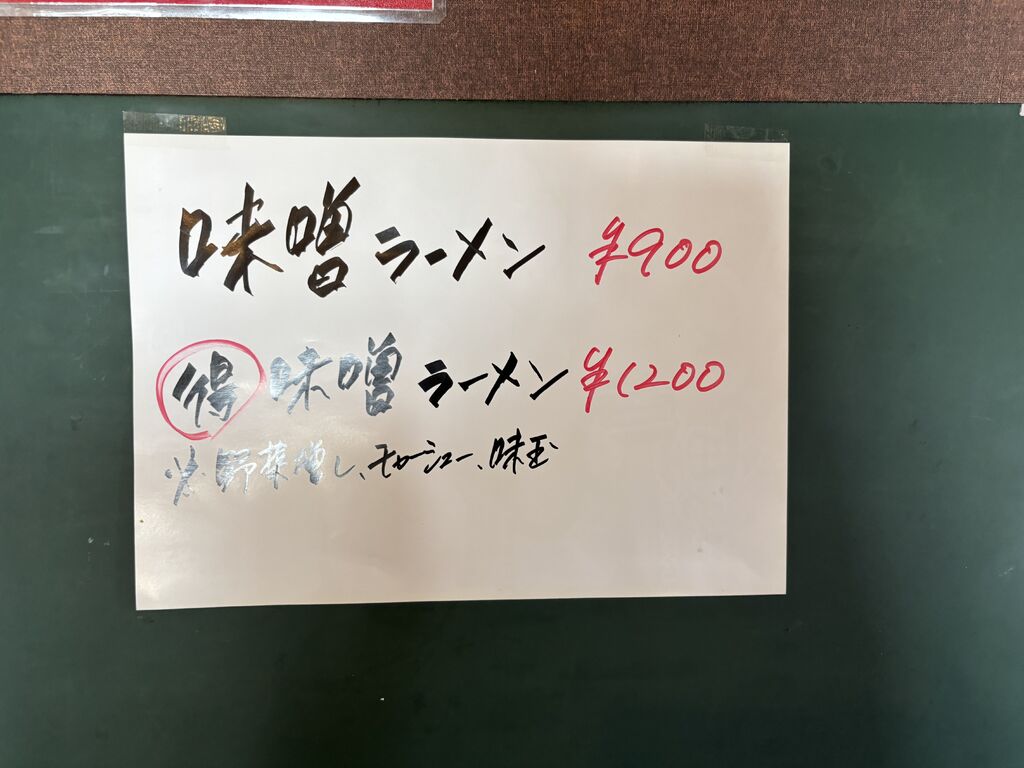 味噌ラーメン ¥900
得 味噌ラーメン ¥1200
※野菜増し、チャーシュー、味玉